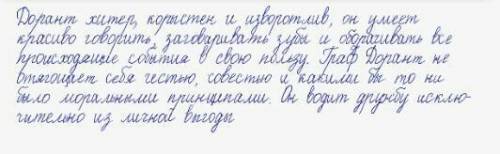 Дорант хитер, корыстен и изворотлив, он умеет
красиво говорить, заговаривать зубы и оборачивать все
происходящие события в свою пользу. Граф Дорант не
отягощает себя честью, совестью и какими бы то ни
было моральными принципами. Он водит дружбу исклю-
чительно из личной выгоды